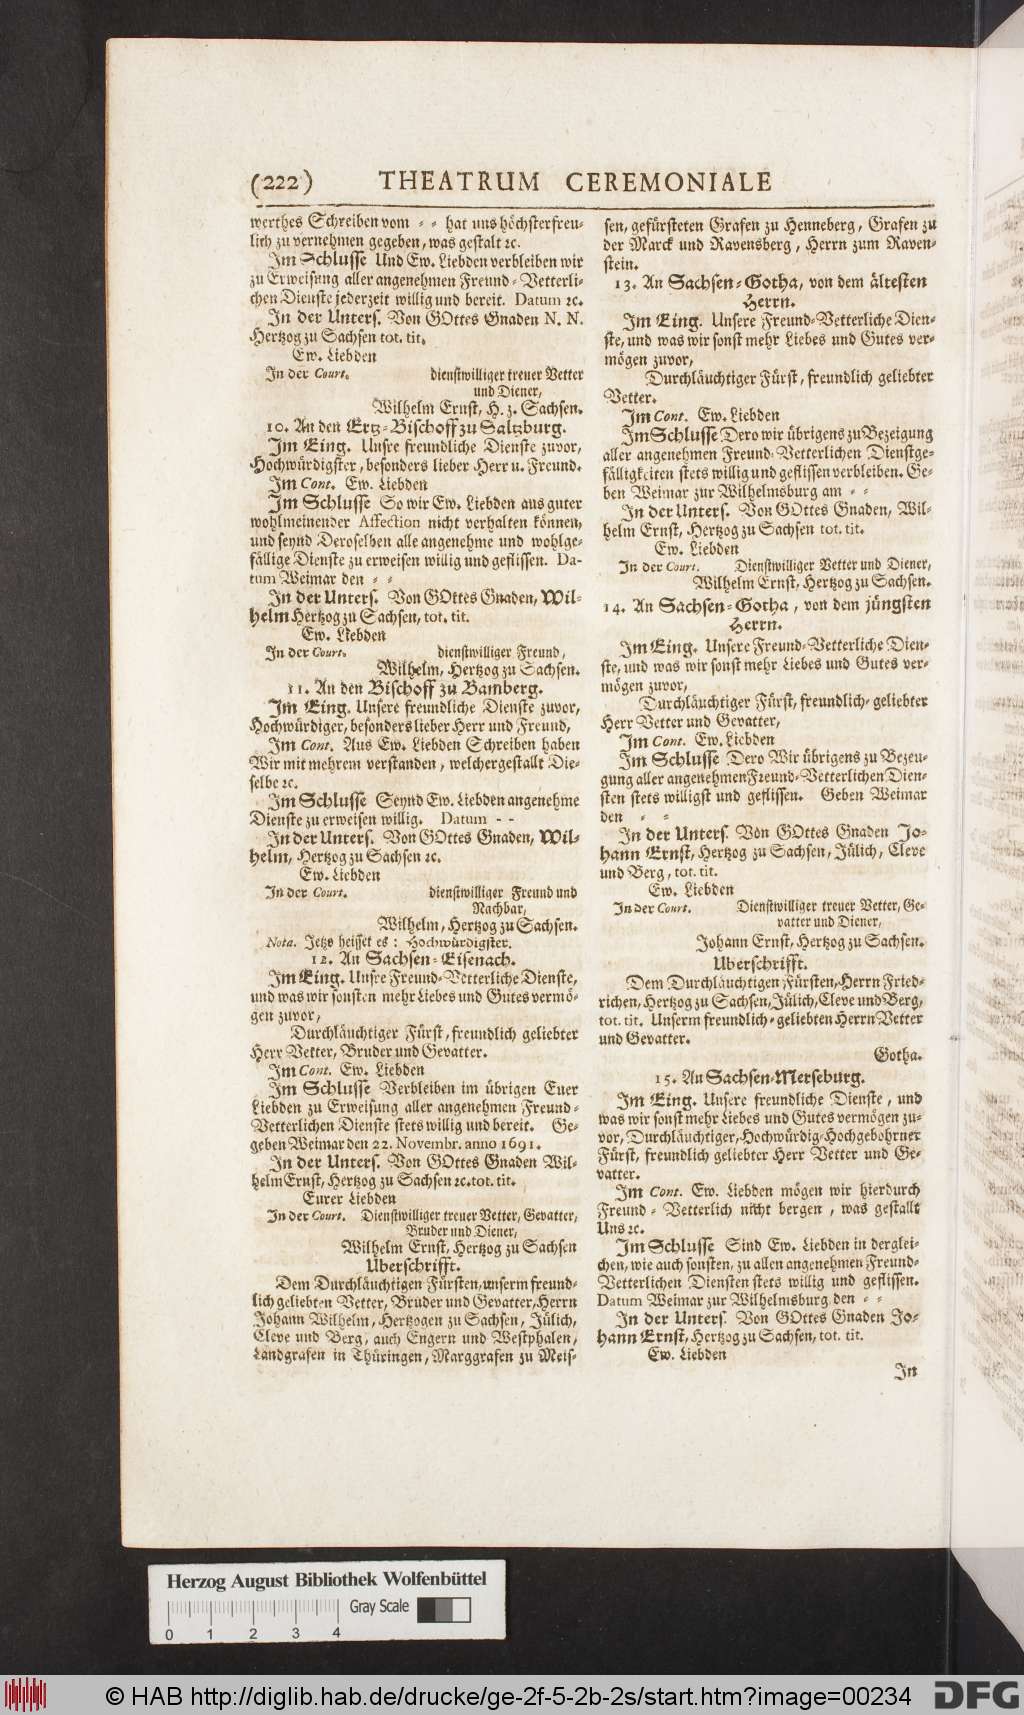 (222) THEATRUM CEREMONIALE
werthes Schreiben vom - - hat uns höchsterfreu-
lich zu vernehmen gegeben, was gestalt ꝛc.
Im Schlusse Und Ew. Liebden verbleiben wir
zu Erweisung aller angenehmen Freund-Vetterli-
chen Dienste jederzeit willig und bereit. Datum ꝛc.
In der Unters. Von GOttes Gnaden N. N.
Hertzog zu Sachsen tot. tit.
Ew. Liebden
In der Court. dienstwilliger treuer Vetter
und Diener,
Wilhelm Ernst, H. z. Sachsen.
10. An den Ertz-Bischoff zu Saltzburg.
Im Eing. Unsre freundliche Dienste zuvor,
Hochwürdigster, besonders lieber Herr u. Freund.
Im Cont. Ew. Liebden
Im Schlusse So wir Ew. Liebden aus guter
wohlmeinender Affection nicht verhalten können,
und seynd Deroselben alle angenehme und wohlge-
fällige Dienste zu erweisen willig und geflissen. Da-
tum Weimar den - -
In der Unters. Von GOttes Gnaden, Wil-
helm Hertzog zu Sachsen, tot. tit.
Ew. Liebden
In der Court. dienstwilliger Freund,
Wilhelm, Hertzog zu Sachsen.
11. An den Bischoff zu Bamberg.
Im Eing. Unsere freundliche Dienste zuvor,
Hochwürdiger, besonders lieber Herr und Freund,
Im Cont. Aus Ew. Liebden Schreiben haben
Wir mit mehrem verstanden, welchergestallt Die-
selbe ꝛc.
Im Schlusse Seynd Ew. Liebden angenehme
Dienste zu erweisen willig. Datum - -
In der Unters. Von GOttes Gnaden, Wil-
helm, Hertzog zu Sachsen ꝛc.
Ew. Liebden
In der Court. dienstwilliger Freund und
Nachbar,
Wilhelm, Hertzog zu Sachsen.
Nota. Jetzo heisset es: Hochwürdigster.
12. An Sachsen-Eisenach.
Im Eing. Unsre Freund-Vetterliche Dienste,
und was wir sonsten mehr Liebes und Gutes vermö-
gen zuvor,
Durchläuchtiger Fürst, freundlich geliebter
Herr Vetter, Bruder und Gevatter.
Im Cont. Ew. Liebden
Im Schlusse Verbleiben im übrigen Euer
Liebden zu Erweisung aller angenehmen Freund-
Vetterlichen Dienste stets willig und bereit. Ge-
geben Weimar den 22. Novembr. anno 1691.
In der Unters. Von GOttes Gnaden Wil-
helm Ernst, Hertzog zu Sachsen ꝛc. tot. tit.
Eurer Liebden
In der Court. Dienstwilliger treuer Vetter, Gevatter,
Bruder und Diener,
Wilhelm Ernst, Hertzog zu Sachsen
Uberschrifft.
Dem Durchläuchtigen Fürsten, unserm freund-
lich geliebten Vetter, Bruder und Gevatter, Herrn
Johann Wilhelm, Hertzogen zu Sachsen, Jülich,
Cleve und Berg, auch Engern und Westphalen,
Landgrafen in Thüringen, Marggrafen zu Meis-
sen, gefürsteten Grafen zu Henneberg, Grafen zu
der Marck und Ravensberg, Herrn zum Raven-
stein.
13. An Sachsen-Gotha, von dem ältesten
Herrn.
Im Eing. Unsere Freund-Vetterliche Dien-
ste, und was wir sonst mehr Liebes und Gutes ver-
mögen zuvor,
Durchläuchtiger Fürst, freundlich geliebter
Vetter.
Im Cont. Ew. Liebden
Im Schlusse Dero wir übrigens zu Bezeigung
aller angenehmen Freund-Vetterlichen Dienstge-
fälligkeiten stets willig und geflissen verbleiben. Ge-
ben Weimar zur Wilhelmsburg am - -
In der Unters. Von GOttes Gnaden, Wil-
helm Ernst, Hertzog zu Sachsen tot. tit.
Ew. Liebden
In der Court. Dienstwilliger Vetter und Diener,
Wilhelm Ernst, Hertzog zu Sachsen.
14. An Sachsen-Gotha, von dem jüngsten
Herrn.
Im Eing. Unsere Freund-Vetterliche Dien-
ste, und was wir sonst mehr Liebes und Gutes ver-
mögen zuvor,
Durchläuchtiger Fürst, freundlich-geliebter
Herr Vetter und Gevatter,
Im Cont. Ew. Liebden
Im Schlusse Dero Wir übrigens zu Bezeu-
gung aller angenehmen Freund-Vetterlichen Dien-
sten stets willigst und geflissen. Geben Weimar
den - -
In der Unters. Von GOttes Gnaden Jo-
hann Ernst, Hertzog zu Sachsen, Jülich, Cleve
und Berg, tot. tit.
Ew. Liebden
In der Court. Dienstwilliger treuer Vetter, Ge-
vatter und Diener,
Johann Ernst, Hertzog zu Sachsen.
Uberschrifft.
Dem Durchläuchtigen Fürsten, Herrn Fried-
richen, Hertzog zu Sachsen, Jülich, Cleve und Berg,
tot. tit. Unserm freundlich-geliebten Herrn Vetter
und Gevatter.
Gotha.
15. An Sachsen-Merseburg.
Im Eing. Unsere freundliche Dienste, und
was wir sonst mehr Liebes und Gutes vermögen zu-
vor, Durchläuchtiger, Hochwürdig-Hochgebohrner
Fürst, freundlich geliebter Herr Vetter und Ge-
vatter.
Im Cont. Ew. Liebden mögen wir hierdurch
Freund-Vetterlich nicht bergen, was gestallt
Uns ꝛc.
Im Schlusse Sind Ew. Liebden in derglei-
chen, wie auch sonsten, zu allen angenehmen Freund-
Vetterlichen Diensten stets willig und geflissen.
Datum Weimar zur Wilhelmsburg den - -
In der Unters. Von GOttes Gnaden Jo-
hann Ernst, Hertzog zu Sachsen, tot. tit.
Ew. Liebden
In
Herzog August Bibliothek Wolfenbüttel
Gray Scale
0 1 2 3 4
© HAB http://diglib.hab.de/drucke/ge-2f-5-2b-2s/start.htm?image=00234 DFG